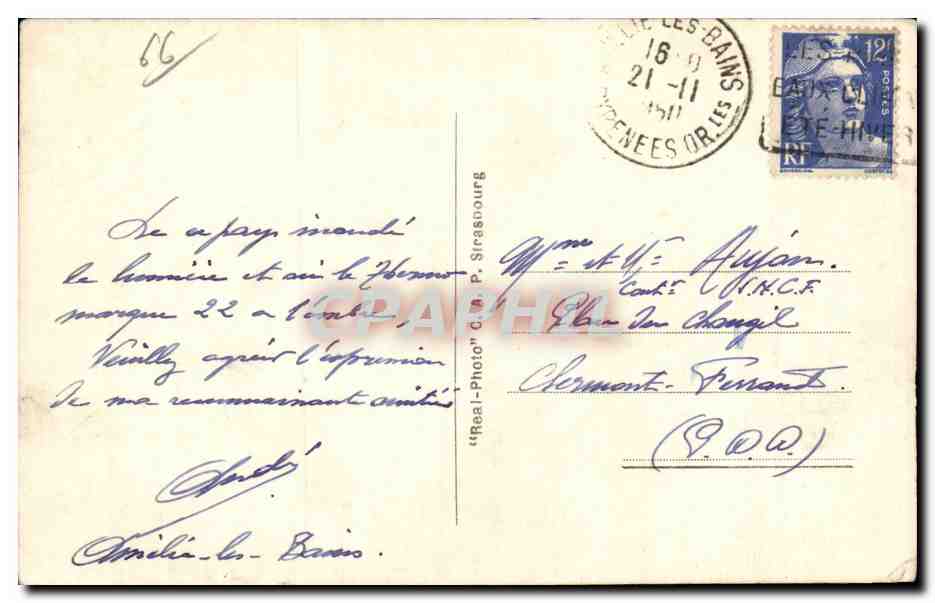 66
ELIE-LES-BAINS
16
21 -11
1950
PYRENEES OR.LES
12F
POSTES
RF
LES
EAUX
ETE-HIVER
De ce pays inondé
de lumière et où le thermo
marque 22 à l'ombre,
Veuillez agréer l'expression
de ma reconnaissante amitié
André
Amélie-les-Bains.
"Real-Photo" C. A. P. Strasbourg
CPAPHIL
Mme et Mr
Cont.r S.N.C.F.
Place du Changil
Clermont-Ferrand.
(P.D.D.)